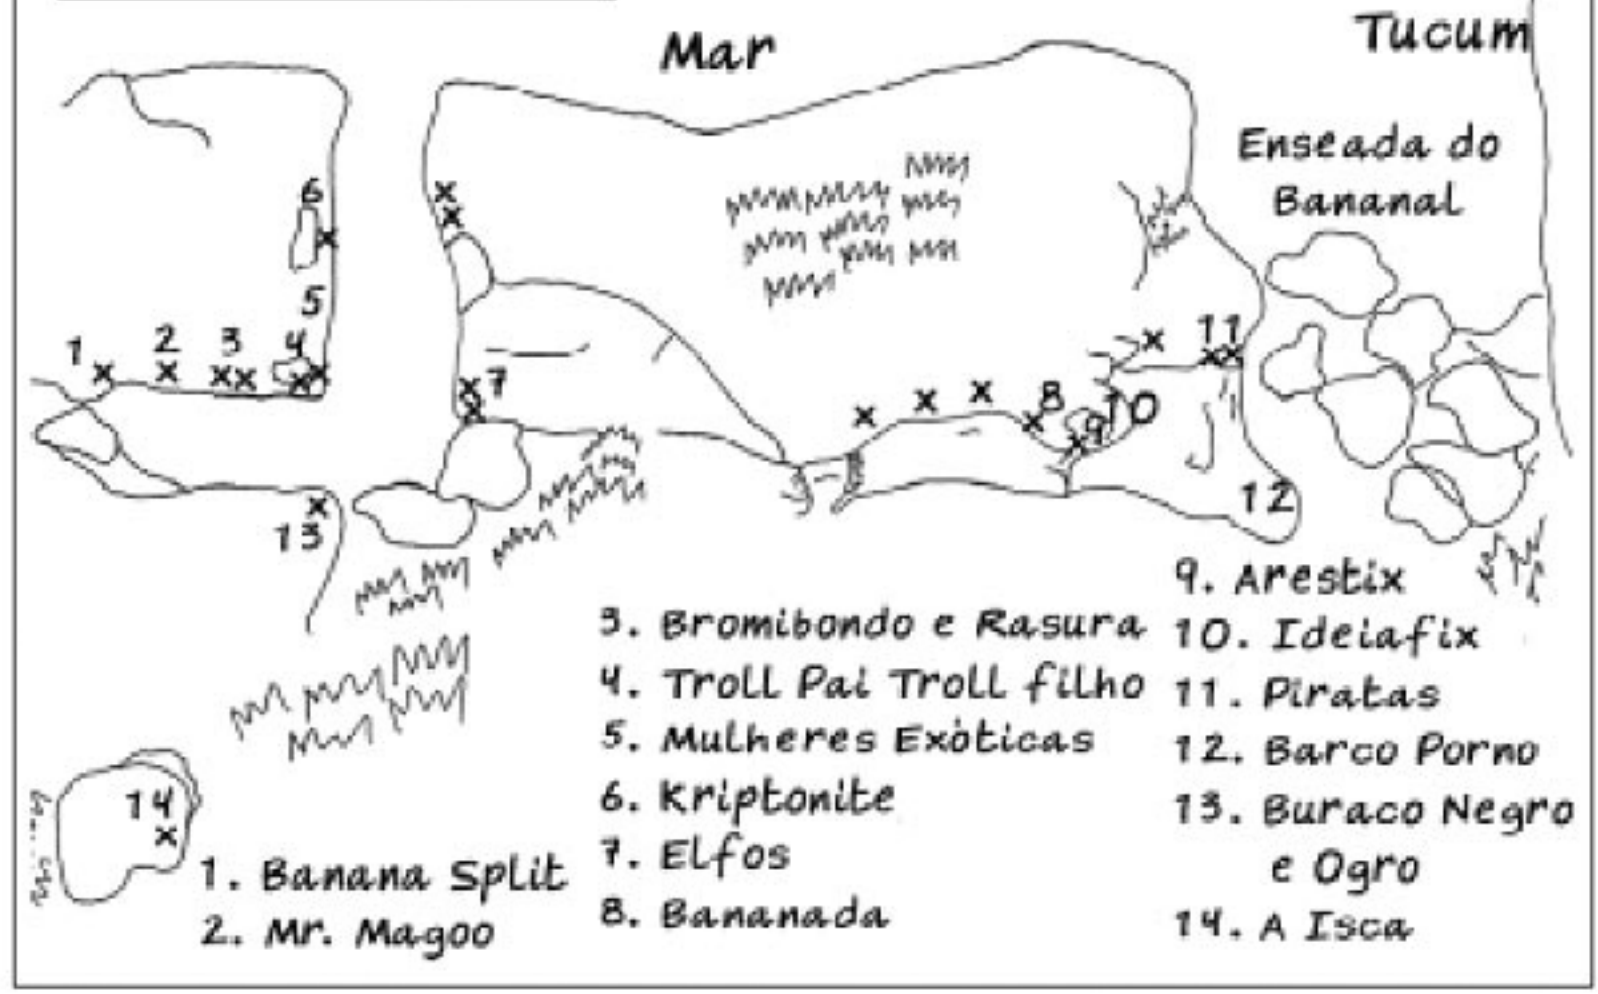 Mar
Tucum
Enseada do
Bananal
6
5
1
2
3
4
11
7
8
10
9
12
13
14
1. Banana Split
2. Mr. Magoo
3. Bromibondo e Rasura
4. Troll Pai Troll filho
5. Mulheres Exòticas
6. Kriptonite
7. Elfos
8. Bananada
9. Arestix
10. Ideiafix
11. Piratas
12. Barco Porno
13. Buraco Negro
e Ogro
14. A Isca